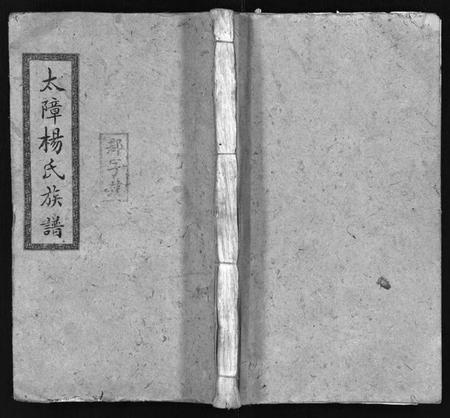 太障楊氏族譜
字號